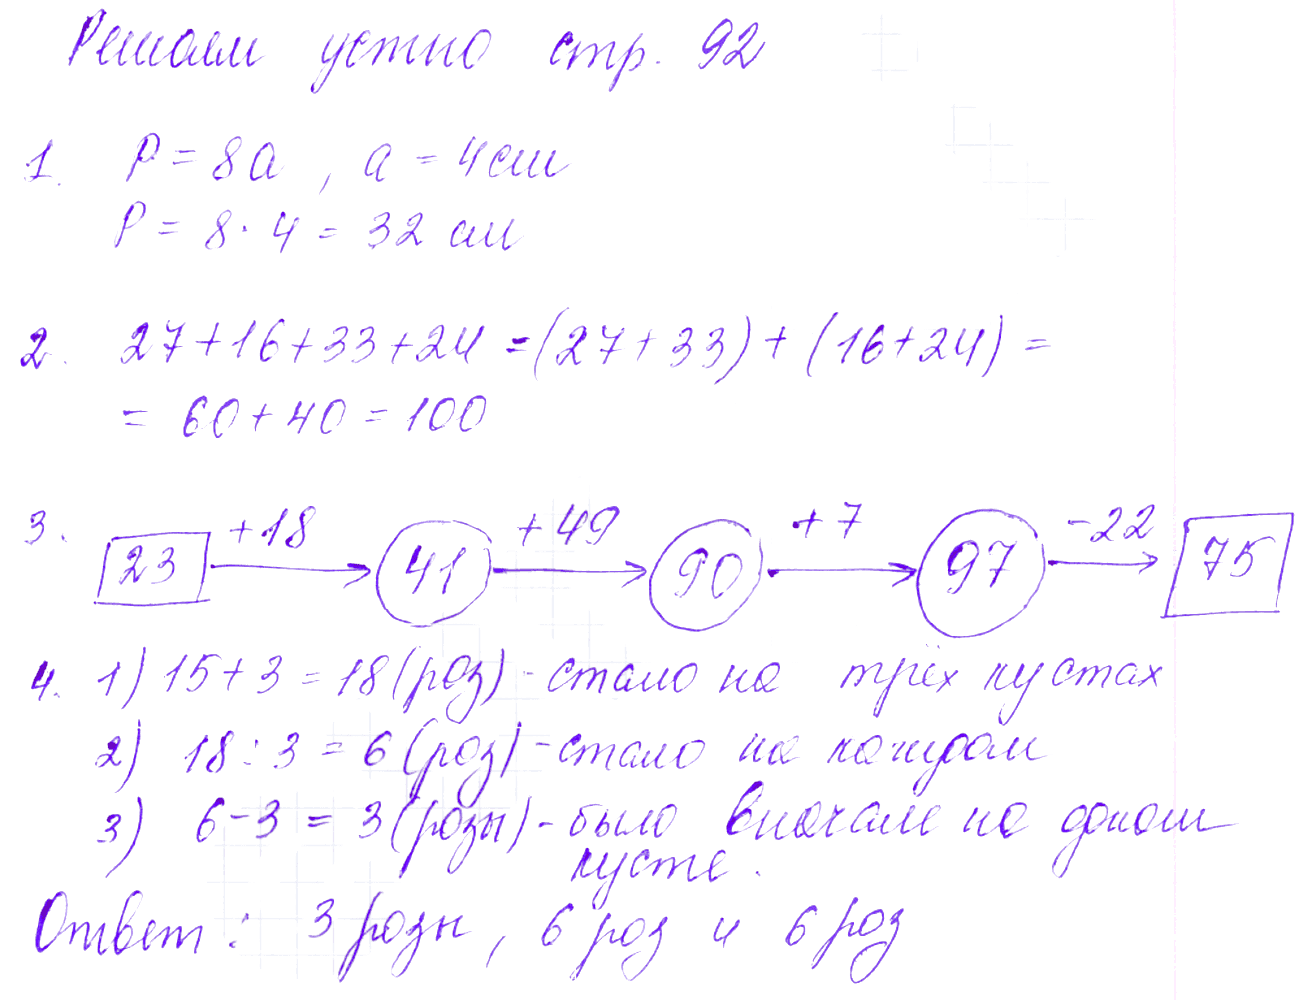 Решаем устно стр. 92
1. P = 8a, a = 4 см
P = 8 · 4 = 32 см
2. 27 + 16 + 33 + 24 = (27 + 33) + (16 + 24) =
= 60 + 40 = 100
3. 23 +18 41 +49 90 +7 97 -22 75
4. 1) 15 + 3 = 18 (роз) - стало на трёх кустах
2) 18 : 3 = 6 (роз) - стало на каждом
3) 6 - 3 = 3 (розы) - было вначале на одном
кусте.
Ответ: 3 розы, 6 роз и 6 роз